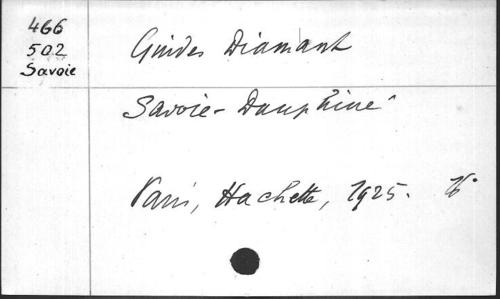 466
502
Savoie
Guides Diamant
Savoie - Dauphiné
Paris, Hachette, 1925.